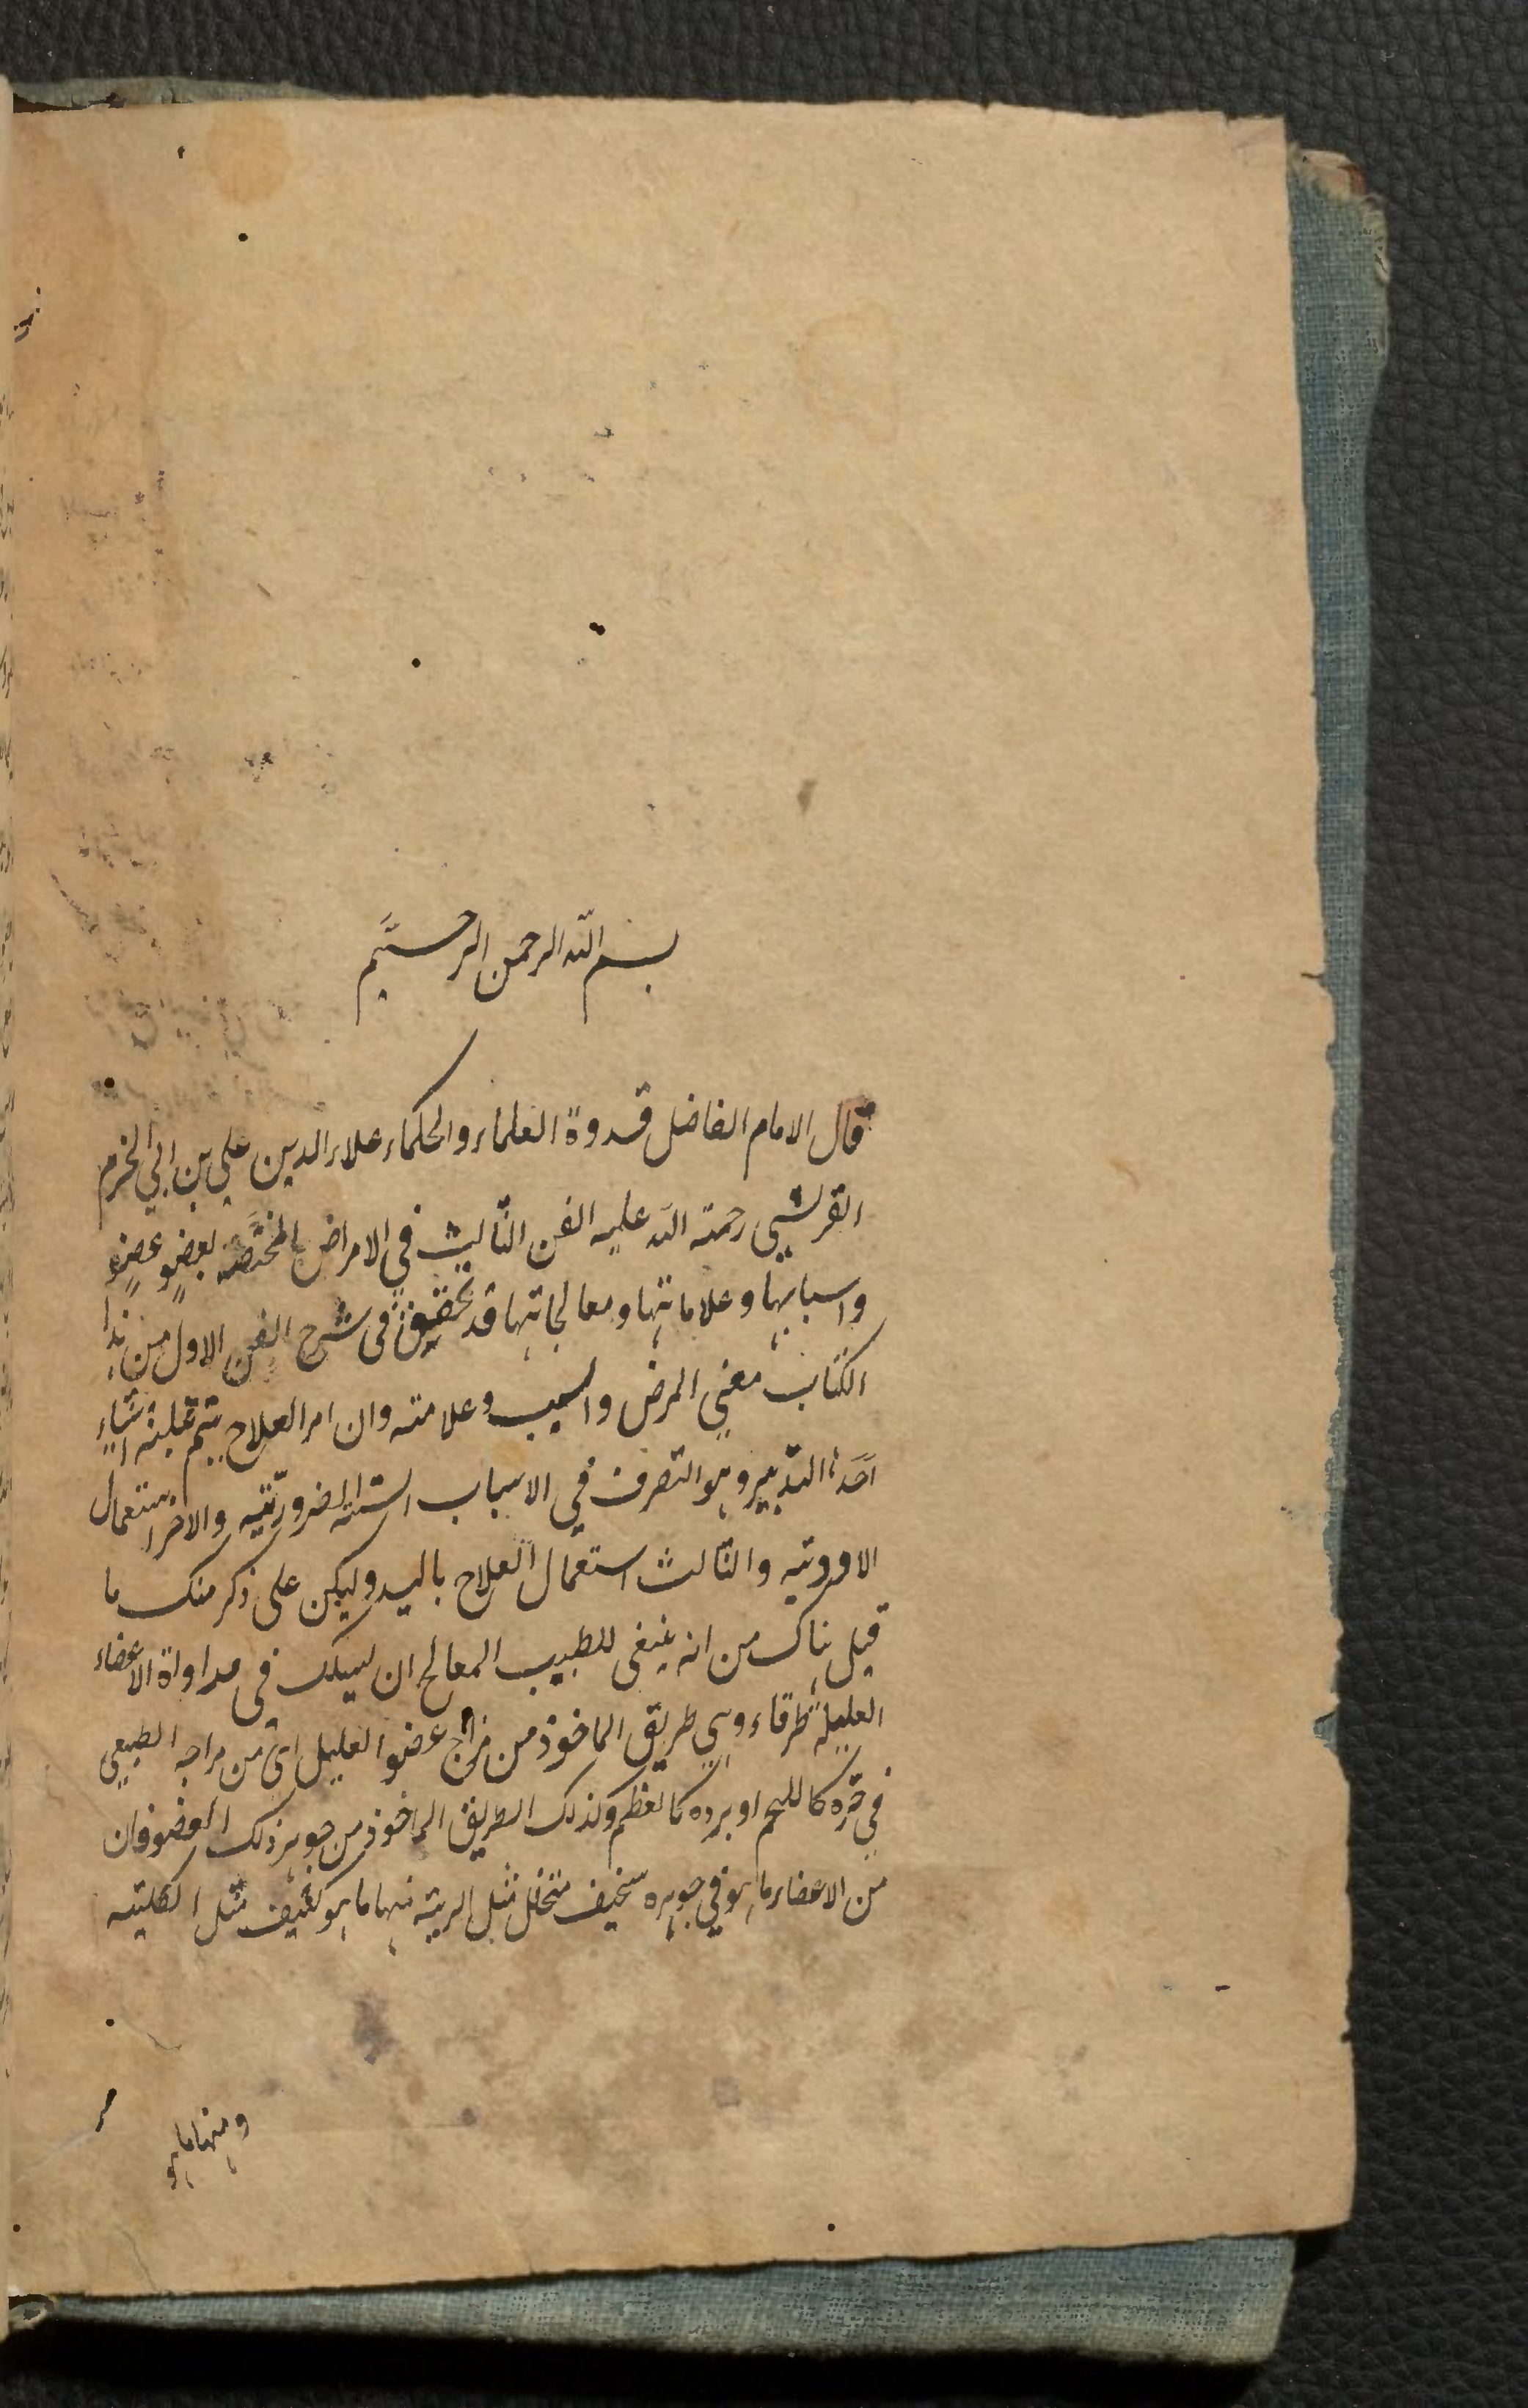 بسم الله الرحمن الرحيم
قال الامام الفاضل قدوة العلماء والحكماء علاء الدين علي بن ابي الحزم
القرشي رحمة الله عليه الفن الثالث في الامراض المختصة بعضو عضو
واسبابها وعلاماتها ومعالجاتها قد تحقيق في شرح الفن الاول من هذا
الكتاب معني المرض والسبب وعلامته وان امر العلاج يتم بثلثة اشياء
احدها التدبير وهو التصرف في الاسباب الستة الضرورية والاخر استعمال
الادوية والثالث استعمال العلاج باليد وليكن على ذكر منك ما
قيل هناك من انه ينبغى للطبيب المعالج ان يسلك في مداواة الاعضاء
العليلة طرقاء وهي طريق الماخوذ من مزاج عضو العليل اى من مزاجه الطبيعي
في حره كاللحم او برده كالعظم وكذلك الطريق الماخوذ من جوهر ذلك العضو فان
من الاعضاء ما هو في جوهره سخيف متخلخل مثل الرية منها ما هو كثيف مثل الكلية
ومنها ما هو